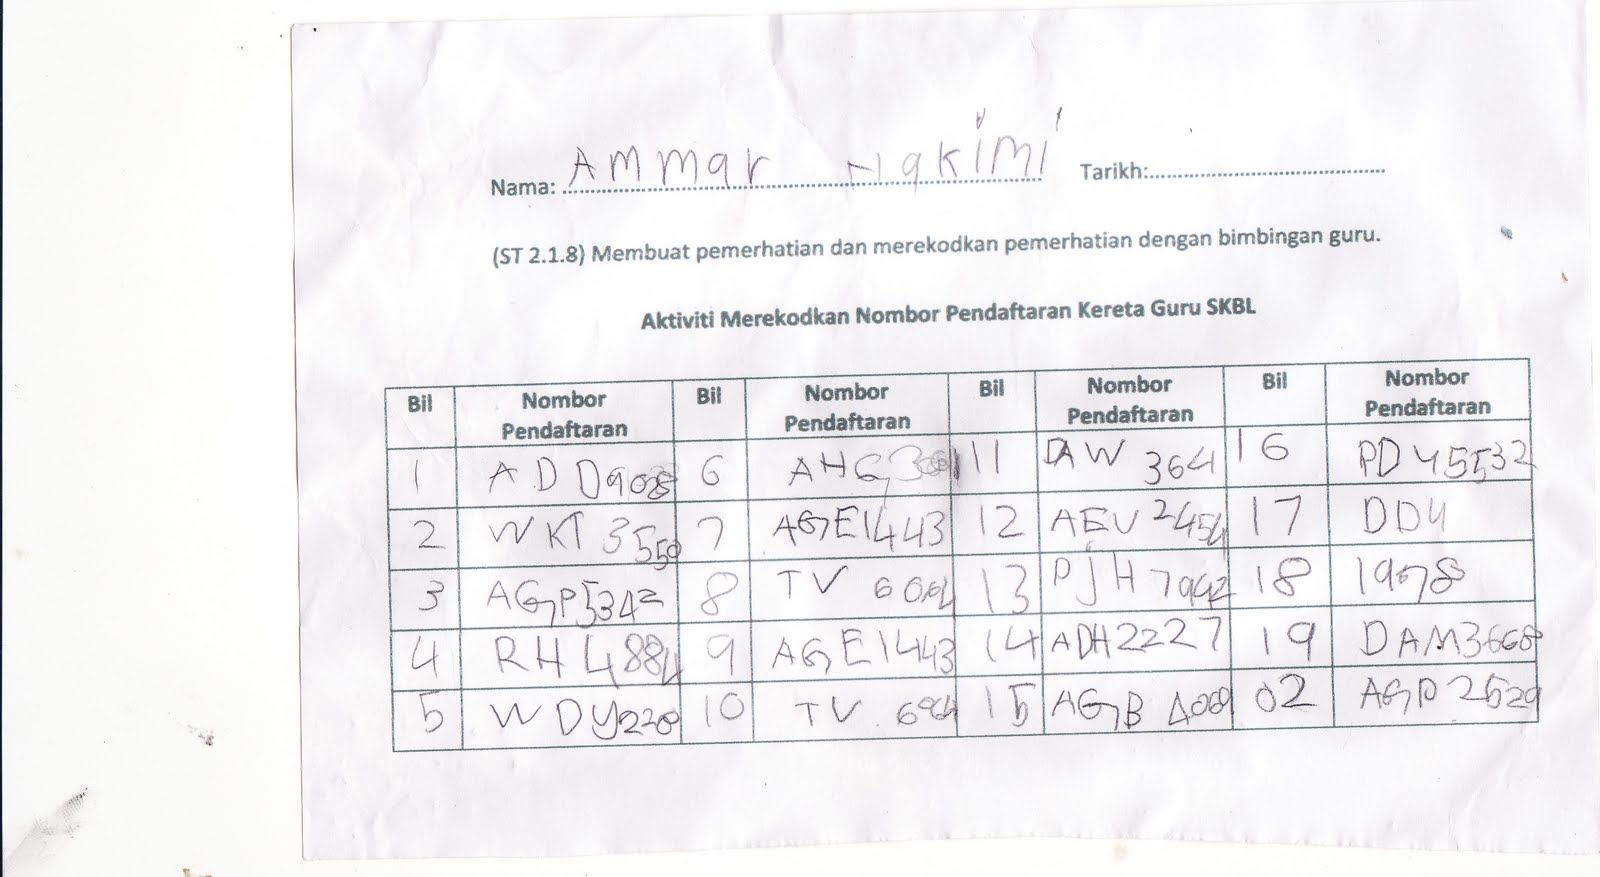 Nama: Ammar Hakimi Tarikh:
(ST 2.1.8) Membuat pemerhatian dan merekodkan pemerhatian dengan bimbingan guru.
Aktiviti Merekodkan Nombor Pendaftaran Kereta Guru SKBL
Bil Nombor Pendaftaran Bil Nombor Pendaftaran Bil Nombor Pendaftaran Bil Nombor Pendaftaran
1 ADD 6 AHG 11 DAW 364 16 PDY5532
2 WKT 3550 7 AGE1443 12 AEU 2454 17 DDY
3 AGP5342 8 TV 13 PJH 7942 18 1978
4 RH4884 9 AGE1443 14 ADH2227 19 DAM3668
5 WDY220 10 TV 15 AGB 4009 02 AGP2529